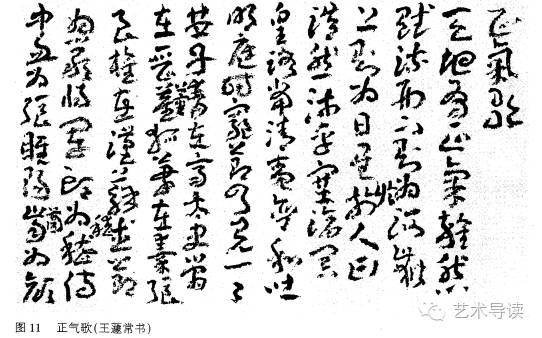 正氣歌
天地有正氣雜然
賦流形下則為河嶽
上則為日星於人曰
浩然沛乎塞滄冥
皇路當清夷含和吐
明庭時窮節乃見一一
垂丹青在齊太史簡
在晉董狐筆在秦張
良椎在漢蘇武節
為嚴將軍頭為嵇侍
中血為張睢陽齒為顏
图 11 正气歌(王蘧常书)
艺术导读